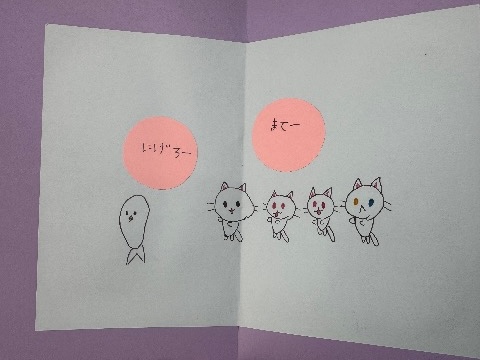 にげろー
まてー